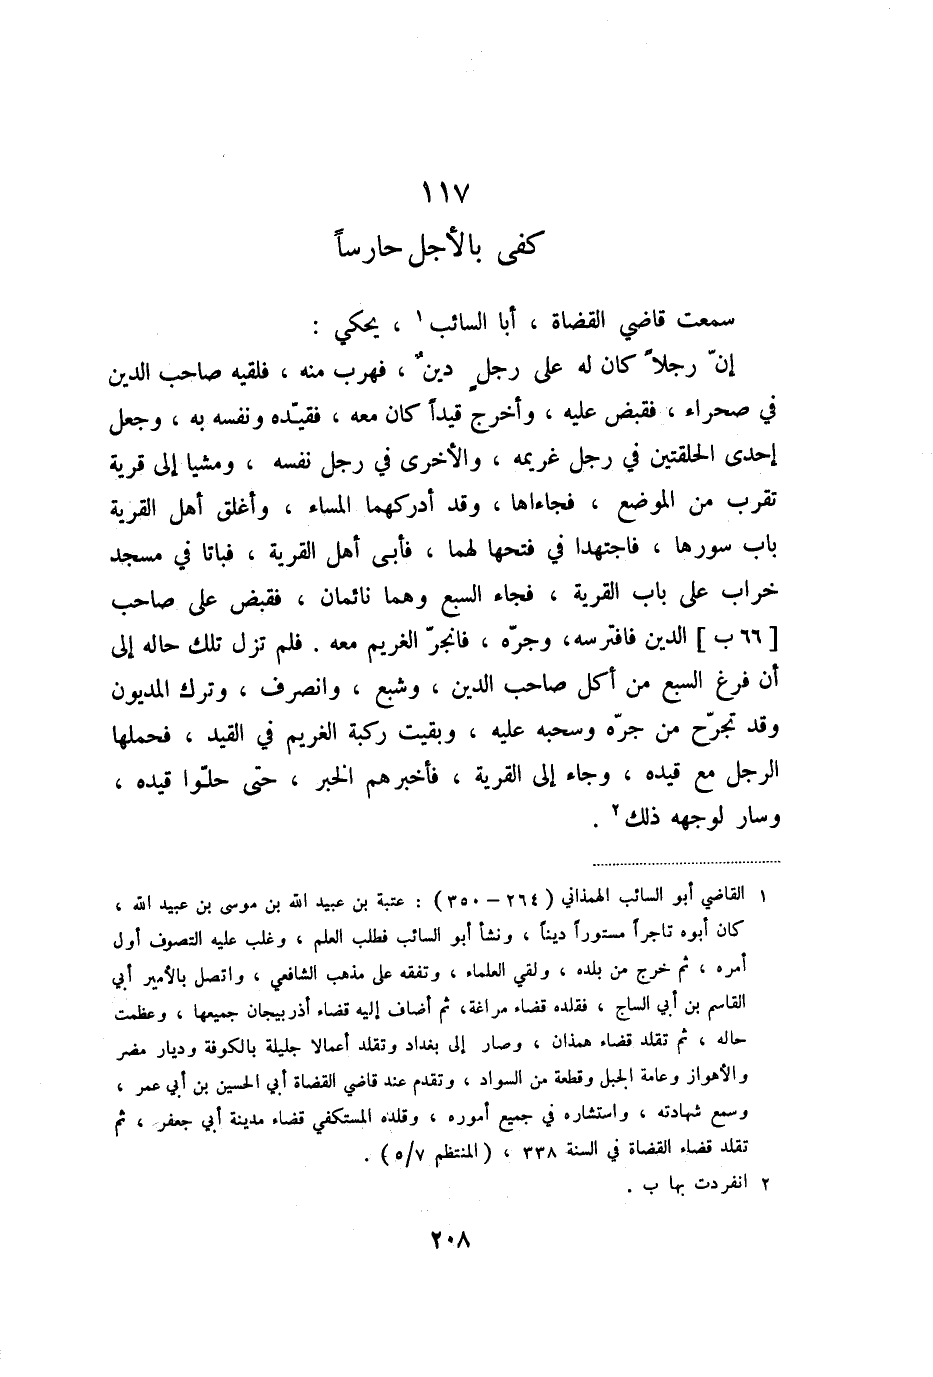 ١١٧
كفى بالأجل حارساً
سمعت قاضي القضاة ، أبا السائب ١ ، يحكي :
إنّ رجلاً كان له على رجلٍ دينٌ ، فهرب منه ، فلقيه صاحب الدين
في صحراء ، فقبض عليه ، وأخرج قيداً كان معه ، فقيّده ونفسه به ، وجعل
إحدى الحلقتين في رجل غريمه ، والأخرى في رجل نفسه ، ومشيا إلى قرية
تقرب من الموضع ، فجاءاها ، وقد أدركهما المساء ، وأغلق أهل القرية
باب سورها ، فاجتهدا في فتحها لهما ، فأبى أهل القرية ، فباتا في مسجد
خراب على باب القرية ، فجاء السبع وهما نائمان ، فقبض على صاحب
[ ٦٦ ب ] الدين فافترسه، وجرّه ، فانجرّ الغريم معه . فلم تزل تلك حاله إلى
أن فرغ السبع من أكل صاحب الدين ، وشبع ، وانصرف ، وترك المديون
وقد تجرّح من جرّه وسحبه عليه ، وبقيت ركبة الغريم في القيد ، فحملها
الرجل مع قيده ، وجاء إلى القرية ، فأخبرهم الخبر ، حتّى حلّوا قيده ،
وسار لوجهه ذلك ٢ .
١ القاضي أبو السائب الهمذاني ( ٢٦٤ – ٣٥٠ ) : عتبة بن عبيد الله بن موسى بن عبيد الله ،
كان أبوه تاجراً مستوراً ديناً ، ونشأ أبو السائب فطلب العلم ، وغلب عليه التصوف أول
أمره ، ثم خرج من بلده ، ولقي العلماء ، وتفقه على مذهب الشافعي ، واتصل بالأمير أبي
القاسم بن أبي الساج ، فقلده قضاء مراغة، ثم أضاف إليه قضاء أذربيجان جميعها ، وعظمت
حاله ، ثم تقلد قضاء همذان ، وصار إلى بغداد وتقلد أعمالا جليلة بالكوفة وديار مضر
والأهواز وعامة الجبل وقطعة من السواد ، وتقدم عند قاضي القضاة أبي الحسين بن أبي عمر ،
وسمع شهادته ، واستشاره في جميع أموره ، وقلده المستكفي قضاء مدينة أبي جعفر ، ثم
تقلد قضاء القضاة في السنة ٣٣٨ ، ( المنتظم ٥/٧ ) .
٢ انفردت بها ب .
٢٠٨